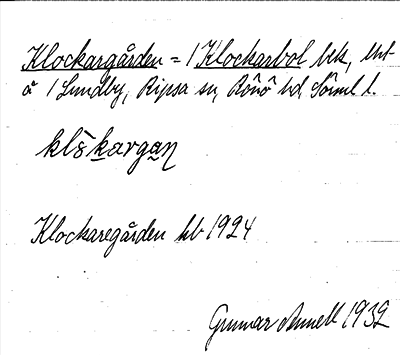 Klockargården = 1 Klockarbol bek, ent-
å 1 Lundby, Ripsa sn, Rönö hd, Sörml l.
klɔ̀kargaɳ
Klockaregården kb 1924
Gunnar Annell 1932